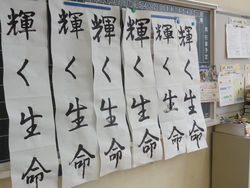 輝く生命
輝く生命
輝く生命
輝く生命
輝く生命
輝く生命